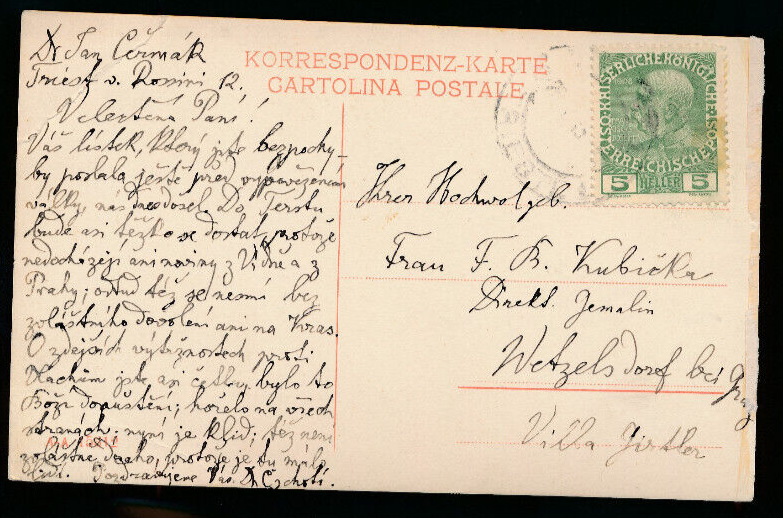 Dr Jan Čermák
Triest v. Rossini 12.
Velectěná Paní!
Váš lístek, který jste bezpochy-
by poslala ještě před vypovězením
války, nás dnes došel. Do Terstu
bude asi těžko se dostat, protože
nedocházejí ani noviny z Vídně a z
Prahy; odtud též se nesmí bez
zvláštního dovolení ani na Kras.
O zdejších výtržnostech proti
Vlachům jste asi četla, bylo to
Boží dopuštění; hořelo na všech
stranách; nyní je klid; též není
zvláštně draho, protože je tu málo
lidí. Pozdravujeme Vás. Dr
KORRESPONDENZ-KARTE
CARTOLINA POSTALE
KAISERLICHE KÖNIGLICHE
ÖSTERREICHISCHE POST
5 HELLER 5
Ihrer Hochwolgeb.
Frau F. B. Kubička
Direkt. Gemalin
Wetzelsdorf bei Graz
Villa